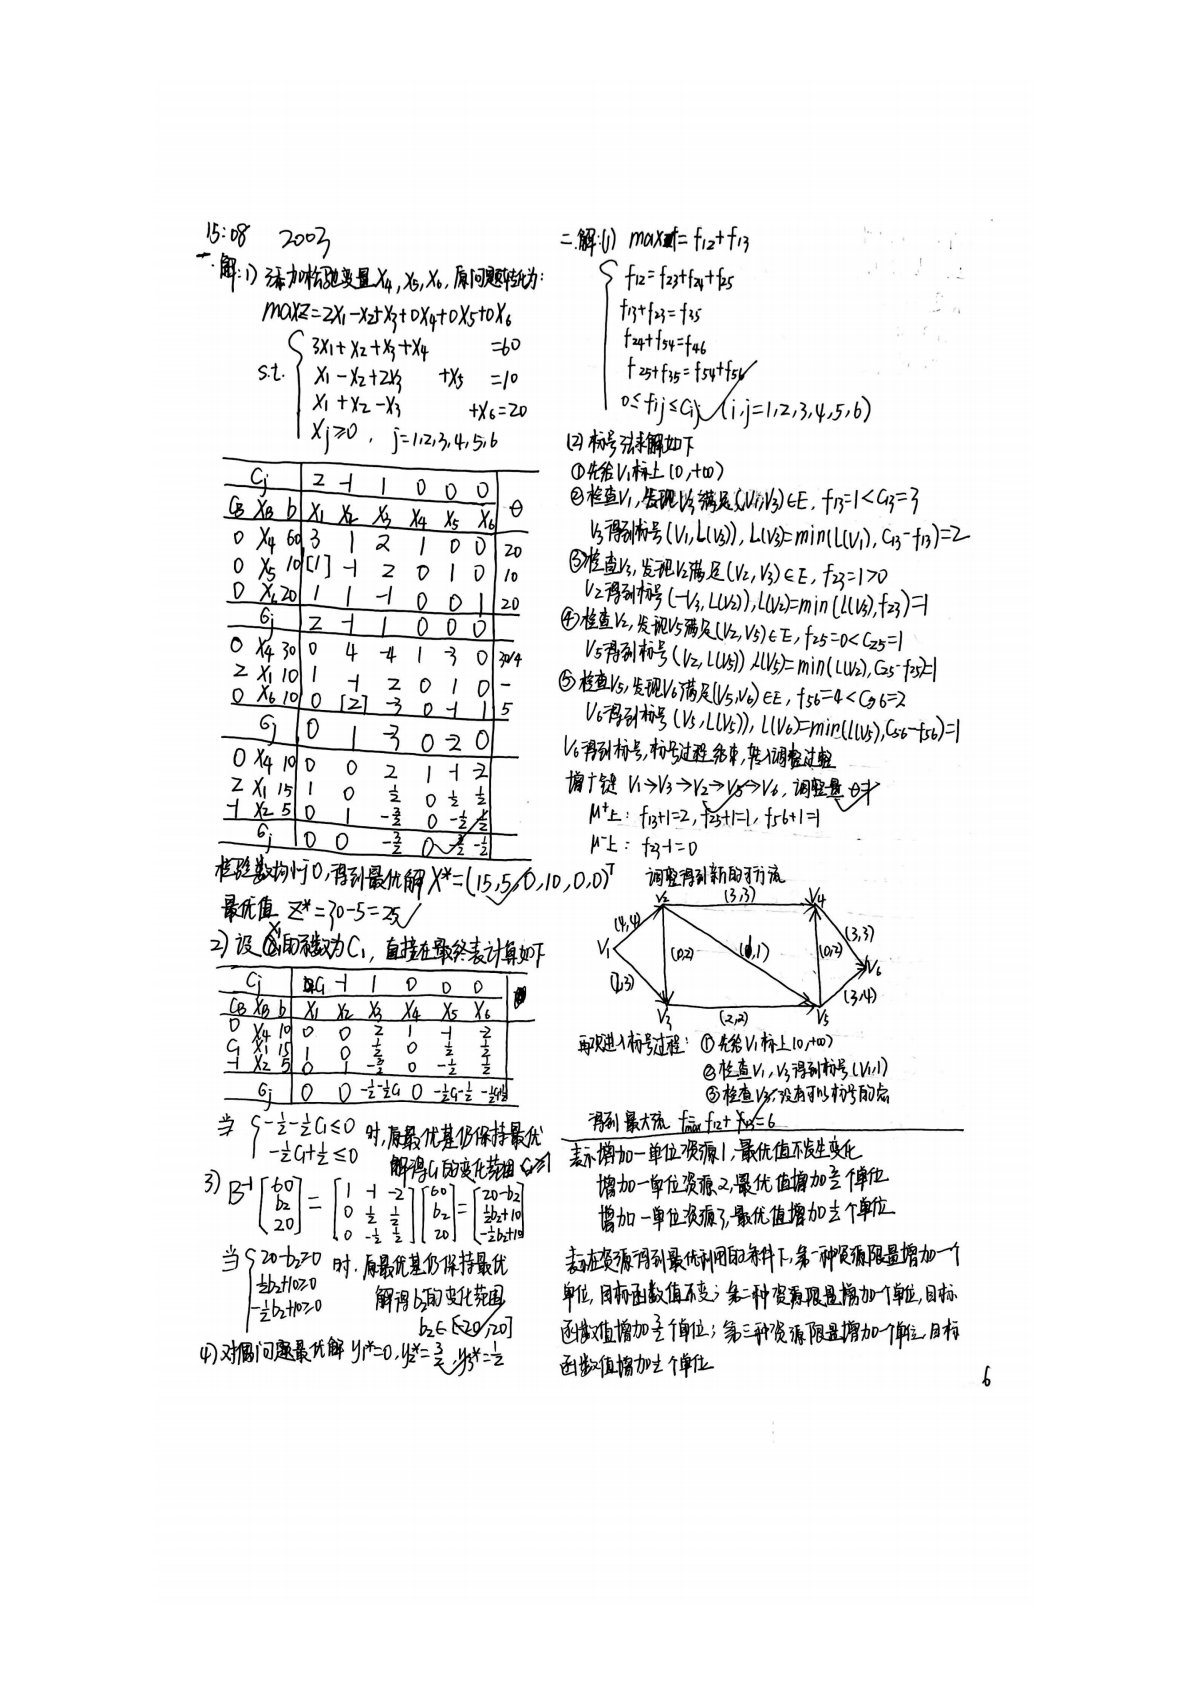 15:08 2003
一.解:1) 添加松弛变量X4,X5,X6,原问题转化为:
maxZ=2X1-X2+X3+0X4+0X5+0X6
s.t.
3X1+X2+X3+X4 =60
X1-X2+2X3 +X5 =10
X1+X2-X3 +X6=20
Xj≥0, j=1,2,3,4,5,6
Cj 2 -1 1 0 0 0 θ
CB XB b X1 X2 X3 X4 X5 X6
0 X4 60 3 1 2 1 0 0 20
0 X5 10 [1] -1 2 0 1 0 10
0 X6 20 1 1 -1 0 0 1 20
σj 2 -1 1 0 0 0
0 X4 30 0 4 -4 1 -3 0 30/4
2 X1 10 1 -1 2 0 1 0 -
0 X6 10 0 [2] -3 0 -1 1 5
σj 0 1 -3 0 -2 0
0 X4 10 0 0 2 1 -1 -2
2 X1 15 1 0 1/2 0 1/2 1/2
-1 X2 5 0 1 -3/2 0 -1/2 1/2
σj 0 0 -3/2 0 -3/2 -1/2
检验数均小于0,得到最优解X*=(15,5,0,10,0,0)T
最优值 Z*=30-5=25
2) 设X1的系数为C1,直接在最终表计算如下
Cj C1 -1 1 0 0 0
CB XB b X1 X2 X3 X4 X5 X6
0 X4 10 0 0 2 1 -1 -2
C1 X1 15 1 0 1/2 0 1/2 1/2
-1 X2 5 0 1 -3/2 0 -1/2 1/2
σj 0 0 -1/2-1/2C1 0 -1/2C1-1/2 -1/2C1+1/2
当 { -1/2-1/2C1≤0
-1/2C1+1/2≤0 时,原最优基仍保持最优
解得C1的变化范围 C1≥1
3) B-1 [60 b2 20] = [1 -1 -2; 0 1/2 1/2; 0 -1/2 1/2] [60 b2 20] = [20-b2; 1/2b2+10; -1/2b2+10]
当 { 20-b2≥0
1/2b2+10≥0
-1/2b2+10≥0 时,原最优基仍保持最优
解得b2的变化范围
b2∈[-20,20]
4) 对偶问题最优解 y1*=0, y2*=3/2, y3*=1/2
二.解:(1) max = f12+f13
f12=f23+f24+f25
f13+f23=f35
f24+f54=f46
f25+f35=f54+f56
0≤fij≤Cij (i,j=1,2,3,4,5,6)
(2) 标号法求解如下
①先给V1标上(0,+∞)
②检查V1,发现V3满足(V1,V3)∈E, f13=1<C13=3
V3得到标号(V1,L(V3)), L(V3)=min(L(V1), C13-f13)=2
③检查V3,发现V2满足(V2,V3)∈E, f23=1>0
V2得到标号(-V3,L(V2)), L(V2)=min(L(V3),f23)=1
④检查V2,发现V5满足(V2,V5)∈E, f25=0<C25=1
V5得到标号(V2,L(V5)) L(V5)=min(L(V2), C25-f25)=1
⑤检查V5,发现V6满足(V5,V6)∈E, f56=4<C56=2
V6得到标号(V5,L(V5)), L(V6)=min(L(V5),C56-f56)=1
V6得到标号,标号过程结束,转入调整过程
增广链 V1→V3→V2→V5→V6, 调整量 θ=1
μ+上: f13+1=2, f25+1=1, f56+1=1
μ-上: f23-1=0
调整得到新的可行流
V2 (3,3) V4
(4,4) (3,3)
V1 (0,2) (1,1) (0,2) V6
(2,3) (3,4)
V3 (2,2) V5
再次进入标号过程: ①先给V1标上(0,+∞)
②检查V1,V3得到标号(V1,1)
③检查V3,没有可以标号的点
得到最大流 fmax=f12+f13=6
表示增加一单位资源1,最优值不发生变化
增加一单位资源2,最优值增加3/2个单位
增加一单位资源3,最优值增加1/2个单位
表示在资源得到最优利用的条件下,第一种资源限量增加一个
单位,目标函数值不变;第二种资源限量增加一个单位,目标
函数值增加3/2个单位;第三种资源限量增加一个单位,目标
函数值增加1/2个单位
6